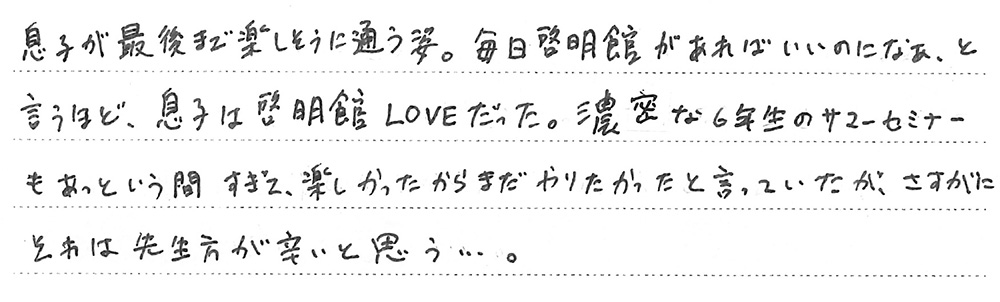 息子が最後まで楽しそうに通う姿。毎日啓明館があればいいのになぁ、と
言うほど、息子は啓明館LOVEだった。濃密な6年生のサマーセミナー
もあっという間すぎて、楽しかったからまだやりたかったと言っていたが、さすがに
それは先生方が辛いと思う…。